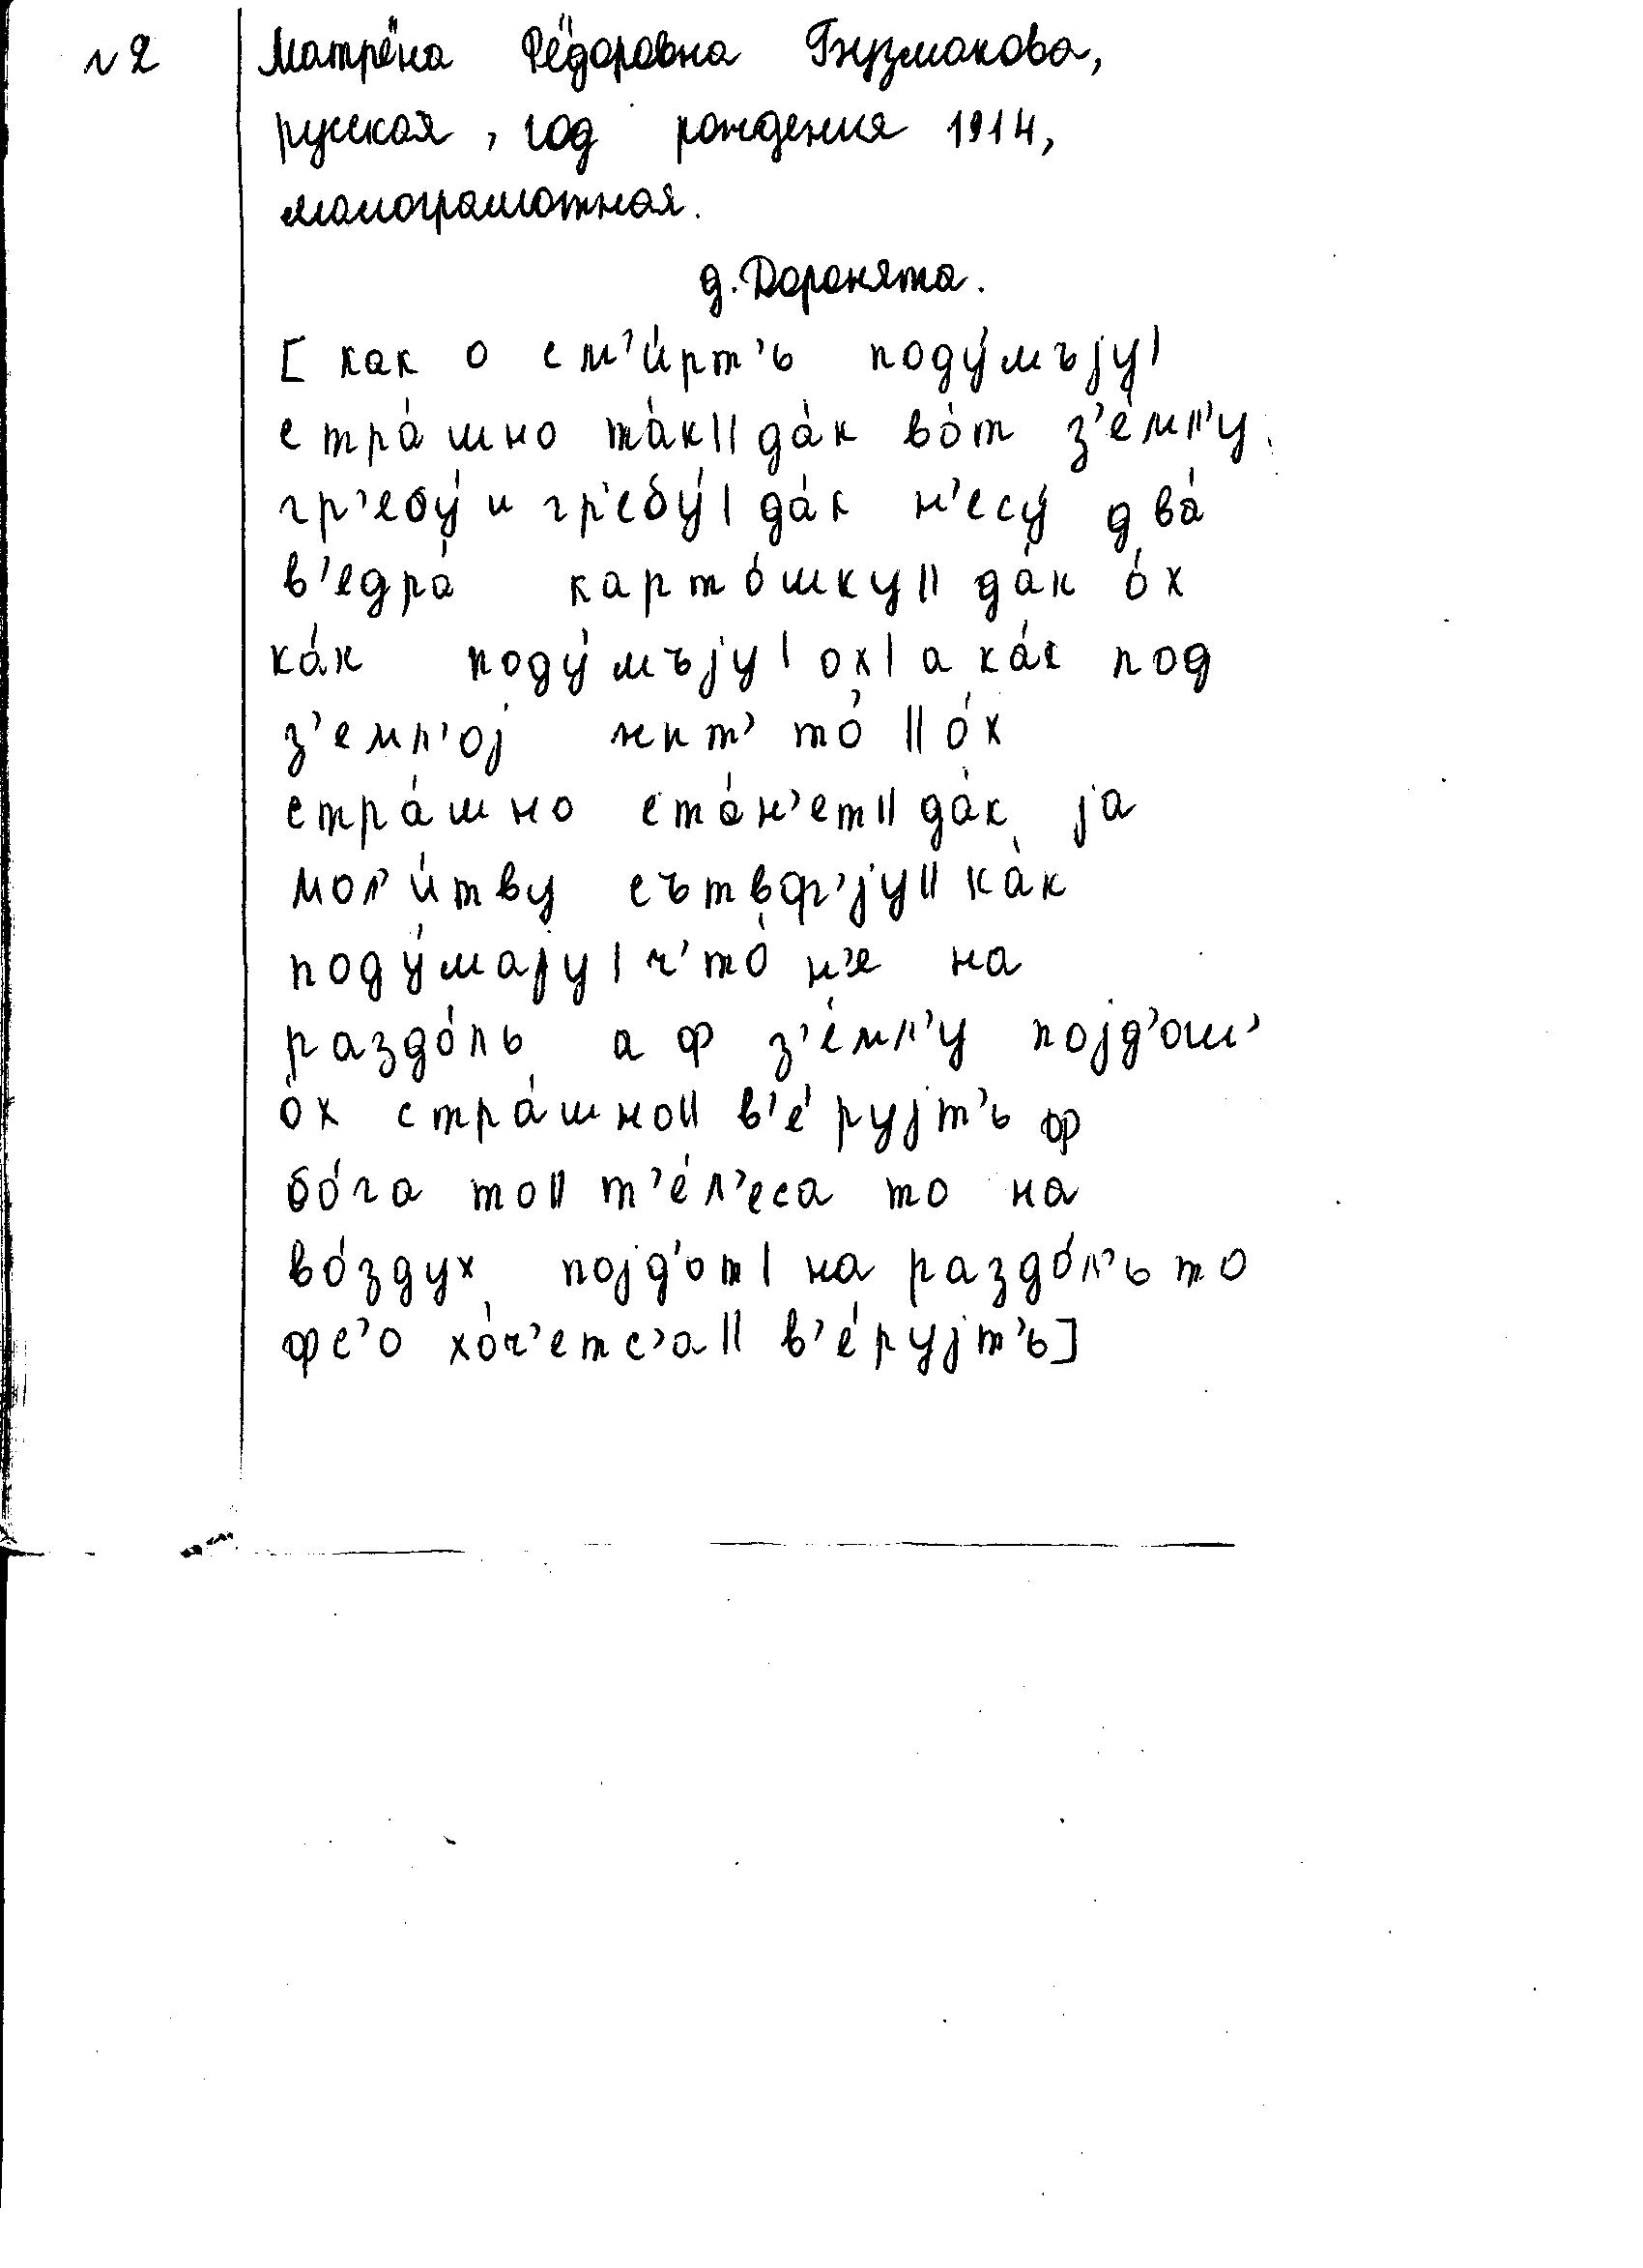 №2 Матрёна Фёдоровна Гнузмакова,
русская, год рождения 1914,
малограмотная.
д. Доронята.
[как о см'и́рт'ъ поду́мъjу|
стра́шно та́к|| да́к во́т з'е́мл'у
гр'ебу́ и гр'ебу́| да́к н'есу́ два́
в'едра́ карто́шку|| да́к о́х
ка́к поду́мъjу| ох| а ка́к под
з'емл'оj жит' то́|| о́х
стра́шно ста́н'ет|| да́к jа
мол'и́тву сътвор'jу|| ка́к
поду́маjу| ч'то́ н'е на
раздо́ль а ф з'е́мл'у поjд'ош'
о́х стра́шно|| в'е́руjт'ъ ф
бо́га то|| т'е́л'еса то на
во́здух поjд'от| на раздо́л'ь то
фс'о хо́ч'етс'а|| в'е́руjт'ъ]